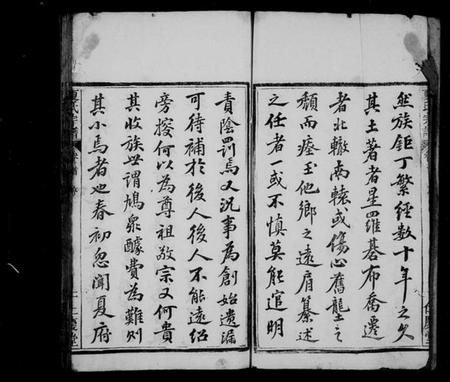 然族鉅丁繁經數十年之久
其土著者星羅碁布喬遷
者北轍南轅或傷心舊壟之
頹而瘞玉他鄉之遠肩纂述
之任者一或不慎莫能追明
責陰罰焉又況事為創始遺漏
可待補於後人後人不能遠紹
旁搜何以為尊祖敬宗又何貴
其收族世謂鳩衆醵費為難則
其小焉者也春初忽聞夏府